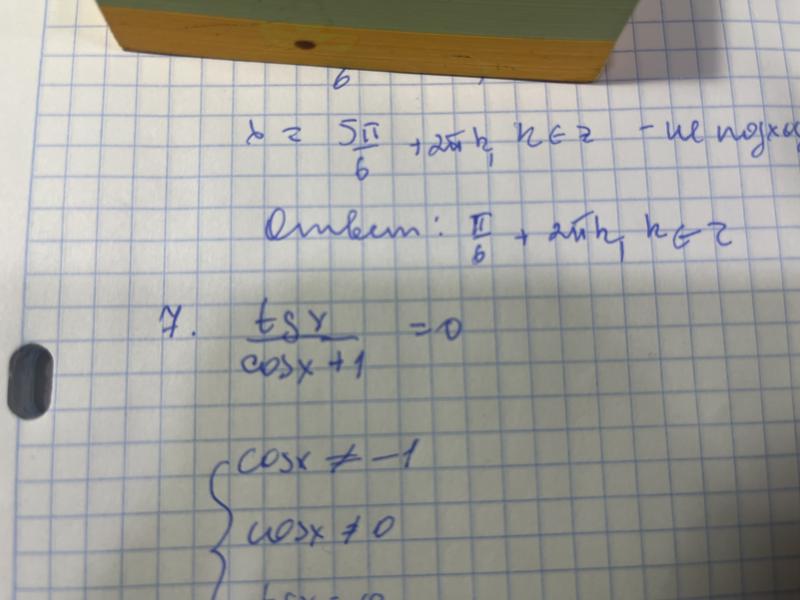 6
x = 5π/6 + 2πk, k ∈ z - не подход
Ответ: π/6 + 2πk, k ∈ z
7. tgx/cosx+1 = 0
cosx ≠ -1
cosx ≠ 0